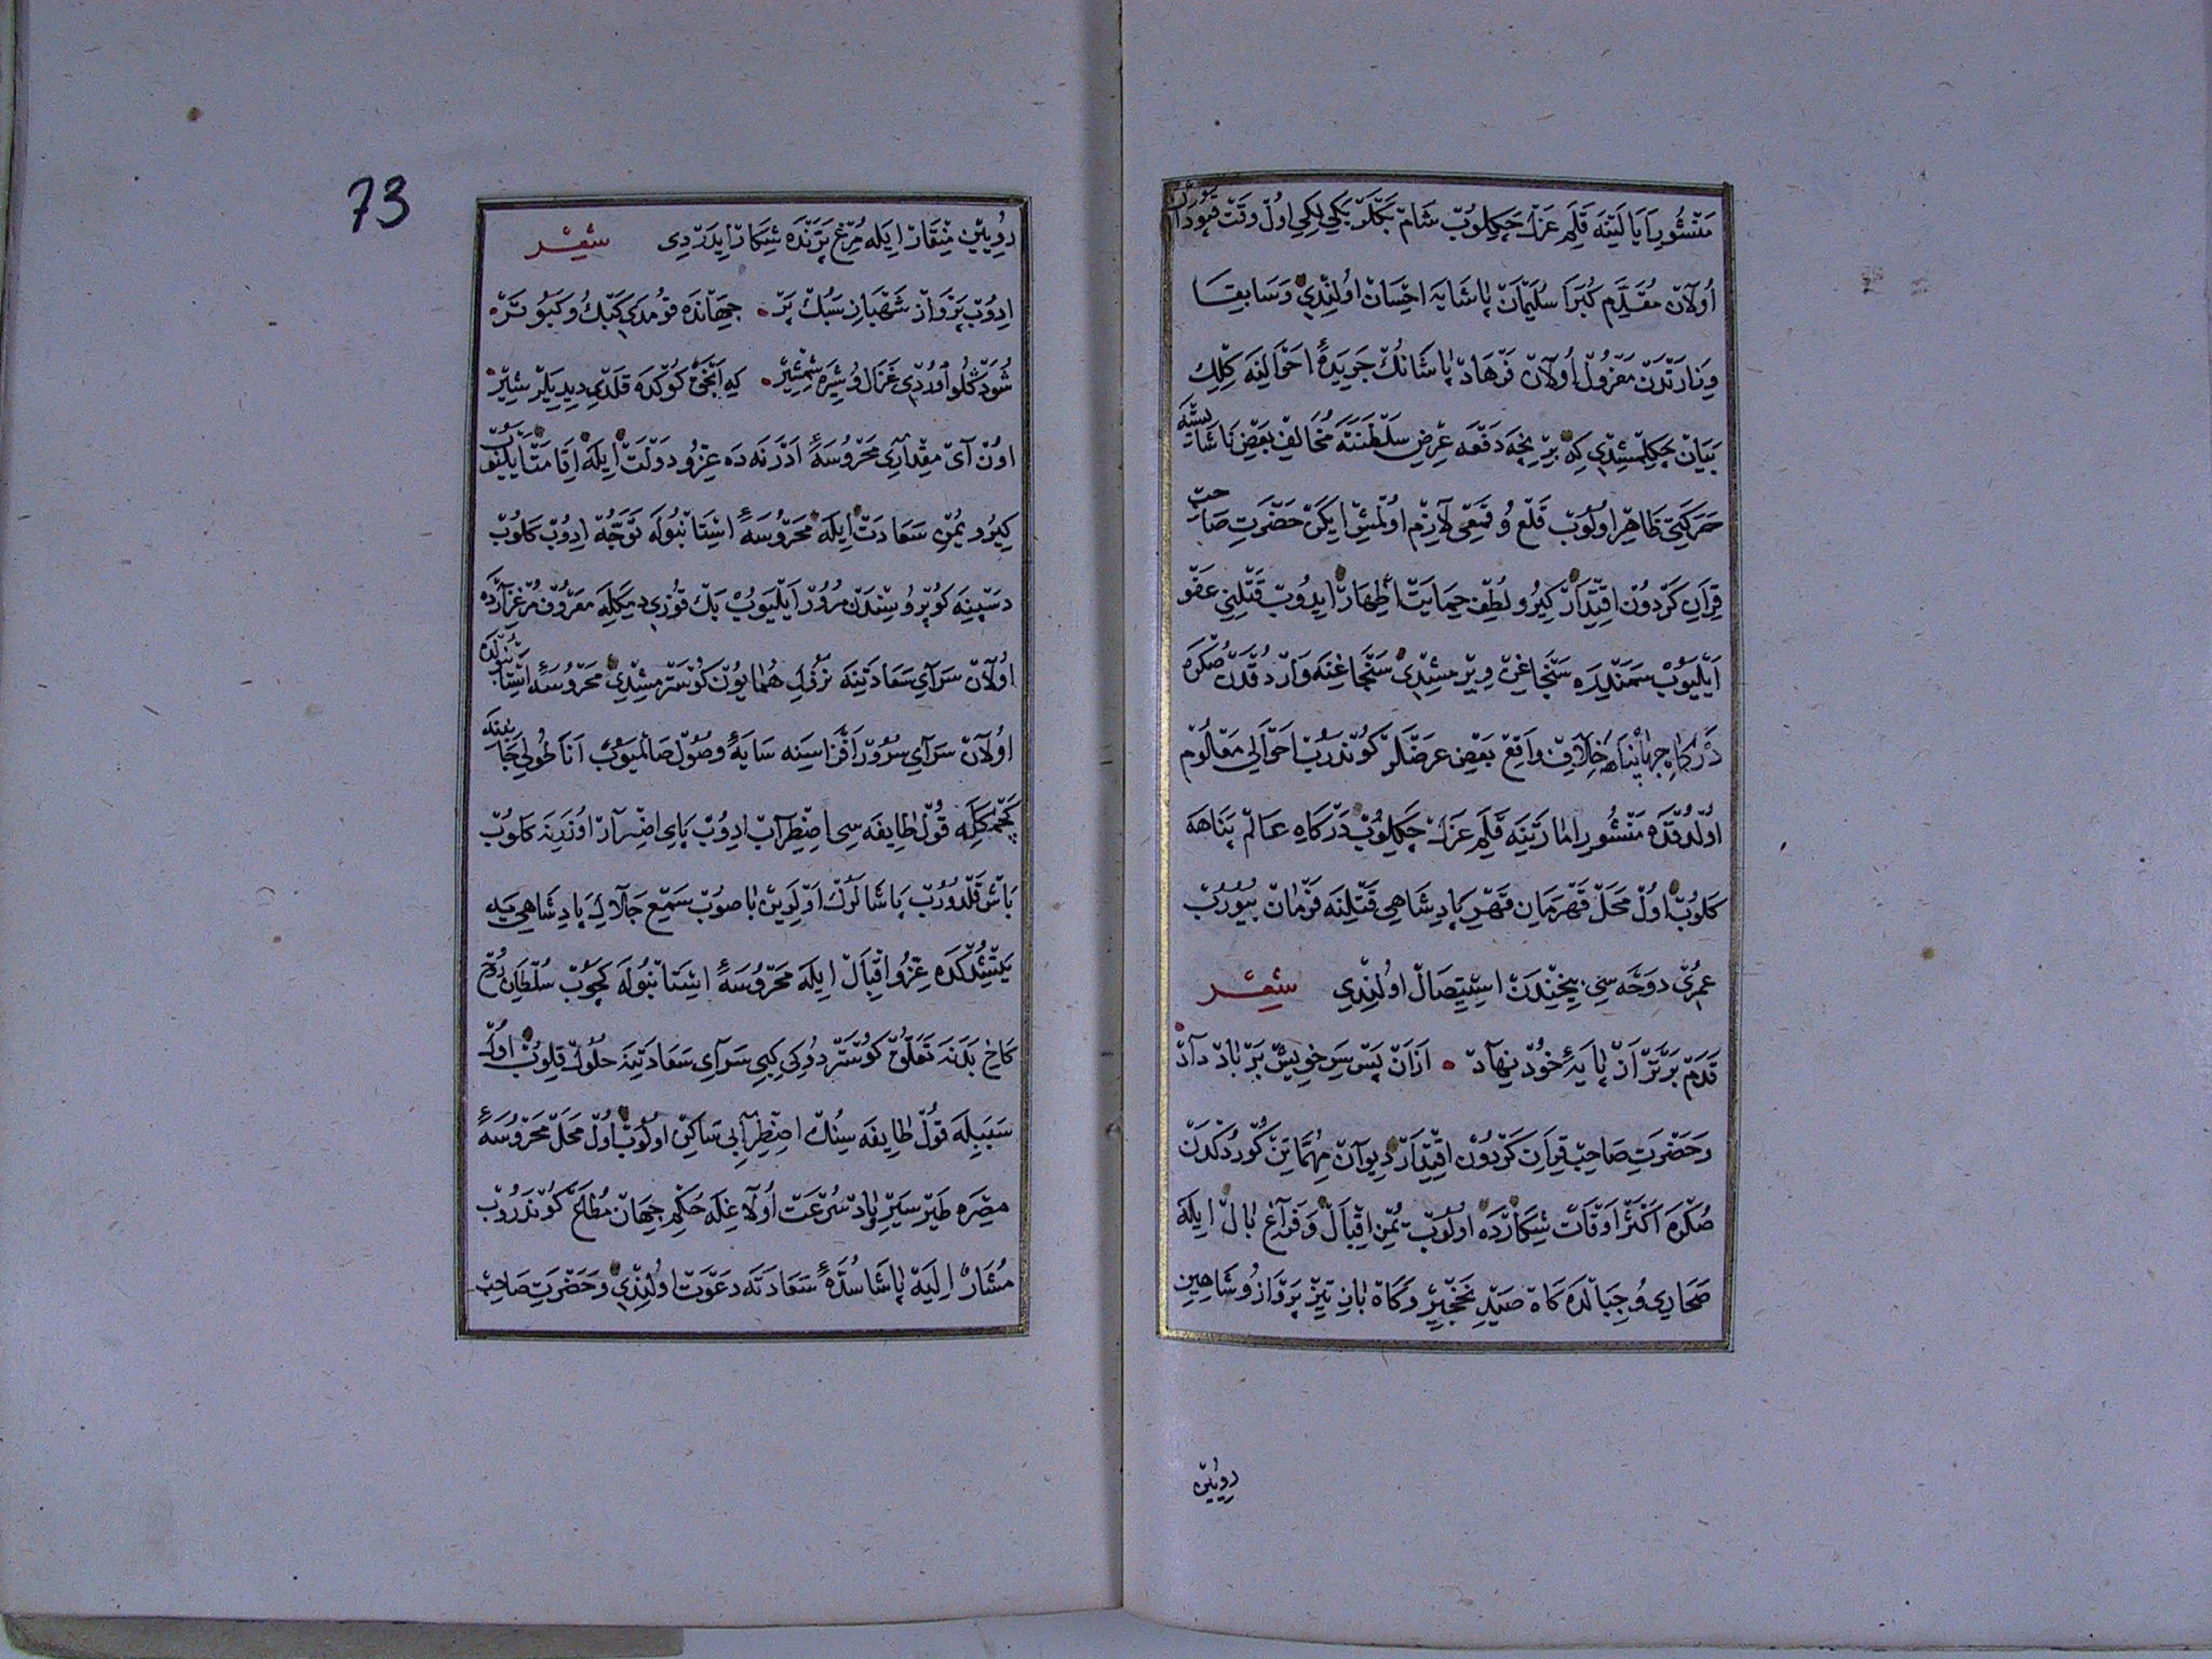 مَنْشُورِ اَيَالَتِنَه قَلَمِ عَزْل چَكِلُوبْ شَامْ بَكْلَرْبَكِيلِكِي اُولْ وَقَتْ قَپُودَانْ
اُولَانْ مُقَدَّمِ كُبَرَا سُلَيْمَانْ پَاشَايَه اِحْسَانْ اُولِنْدِي وَسَابِقَا
وِزَارَتْدَنْ مَعْزُولْ اُولَانْ فَرْهَادْ پَاشَانُكْ جَرِيدَهٔ اَحْوَالِنَه كِلْكِ
بَيَانْ چَكِلْمِشْدِي كِه بِرْ نِيجَه دَفْعَه عِرْضِ سَلْطَنَتَه مُخَالِفْ بَعْضِ نَاشَايِسْتَه
حَرَكَتِي ظَاهِرْ اُولُوبْ قَلْع وُ قَمْعِي لَازِمْ اُولْمِشْ ايكَنْ حَضْرَتِ صَاحِبْ
قِرَانِ كَرْدُونْ اِقْتِدَارْ كِيرُو لُطْفِ حِمَايَتْ اِظْهَارْ ايدُوبْ قَتْلِنِي عَفْو
اَيْلَيُوبْ سَمَنْدِرَه سَنْجَاغِنْ وِيرْمِشْدِي سَنْجَاغِنَه وَارْدُقْدَنْ صُكْرَه
دَرْكَاهِ جِهَانْپَنَاهَه خِلَافِ وَاقِعْ بَعْضِ عَرْضَلَرْ كُونْدَرُبْ اَحْوَالِي مَعْلُومْ
اُولْدُقْدَه مَنْشُورِ اِمَارَتِنَه قَلَمِ عَزْل چَكِلُوبْ دَرْكَاهِ عَالَمْ پَنَاهَه
كَلُوبْ اُولْ مَحَلّ قَهْرَمَانِ قَهْرِ پَادِشَاهِي قَتْلِنَه فَرْمَانْ بُيُورُبْ
عُمْرِي دَوْحَه سِي بِيخِنْدَنْ اِسْتِيصَالْ اُولِنْدِي شِعْر
قَدَمْ بَرْتَرْ اَزْ پَايَهٔ خُودْ نِهَادْ • اَزَانْ پَسْ سَرِ خِويشْ بَرْ بَادْ دَادْ
وَحَضْرَتِ صَاحِبْ قِرَانِ كَرْدُونْ اِقْتِدَارْ دِيوَانْ مُهِمَّاتِنْ كُورْدُكْدَنْ
صُكْرَه اَكْثَرْ اَوْقَاتْ شِكَارْدَه اُولُوبْ يُمْنِ اِقْبَالْ وَفَرَاغِ بَالْ ايلَه
صَحَارِي وُ جِبَالْدَه كَاهْ صَيْدِ نَخْجِيرْ وَكَاهْ بَازِ تِيزْ پَرْوَازْ وُ شَاهِينِ
رويين
73
رُويِينْ مِنْقَارْ ايلَه مُرْغِ پَرَنْدَه شِكَارْ ايدَرْدِي شِعْر
ايدُوبْ پَرْوَازْ شَهْبَازِ سَبُكْ پَرْ • جِهَانْدَه قُومَدِي كَبْك وُ كَبُوتَرْ
شُو دَكْلُو اُورْدِي غَزَالْ وُ شِيرَه شَمْشِيرْ • كِه اَنْجَقْ كُوكْدَه قَلْدِي دِيدِيلَرْ شِيرْ
اُونْ آيْ مِقْدَارِي مَحْرُوسَهٔ اَدَرْنَه دَه عِزُّ و دَوْلَتْ ايلَه اِقَامَتْ اَيْلَيُوبْ
كِيرُو يُمْنِ سَعَادَتْ ايلَه مَحْرُوسَهٔ اِسْتَانْبُولَه تَوَجُّه ايدُوبْ كَلُوبْ
دَسْپِينَه كُوپْرُوسِنْدَنْ مُرُورْ اَيْلَيُوبْ بَكْ قُوزِي دِيمَكْلَه مَعْرُوفْ مُرْغْزَارْدَه
اُولَانْ سَرَاي سَعَادَتِنَه نُزُولِ هُمَايُونْ كُوسْتَرْمِشْدِي مَحْرُوسَهٔ اِسْتَانْبُولْدَه
اُولَانْ سَرَاي سُرُورْ اَفْزَاسِنَه سَايَهٔ وُصُولْ صَالْمَيُوبْ اَنَاطُولِي جَانِبِنَه
كَچْمَكْلَه قُولْ طَايِفَه سِي اِضْطِرَابْ ايدُوبْ پَاي اِضْرَارْ اُوزَرِينَه كَلُوبْ
بَاشْ قَلْدُورُبْ پَاشَالَرُكْ اَوْلَرِينْ بَاصُوبْ سَمْعِ جَلَالِ پَادِشَاهِي يَه
يَتِشْدُكْدَه عِزُّ و اِقْبَالْ ايلَه مَحْرُوسَهٔ اِسْتَانْبُولَه كَچُوبْ سُلْطَانِ رُوحْ
كَاخِ بَدَنَه تَعَلُّقْ كُوسْتَرْدُوكِي كِبِي سَرَاي سَعَادَتِنَه حُلُولْ قِلُوبْ اُولْ
سَبَبْلَه قُولْ طَايِفَه سِنُكْ اِضْطِرَابِي سَاكِنْ اُولُوبْ اُولْ مَحَلّ مَحْرُوسَهٔ
مِصْرَه طَيْرْ سَيْرِ بَادْ سُرْعَتْ اُولَاغِلَه حُكْمِ جِهَانْ مُطَاعْ كُونْدَرُوبْ
مُشَارٌ اِلَيْه پَاشَا سُدَّهٔ سَعَادَتَه دَعْوَتْ اُولِنْدِي وَحَضْرَتِ صَاحِبْ